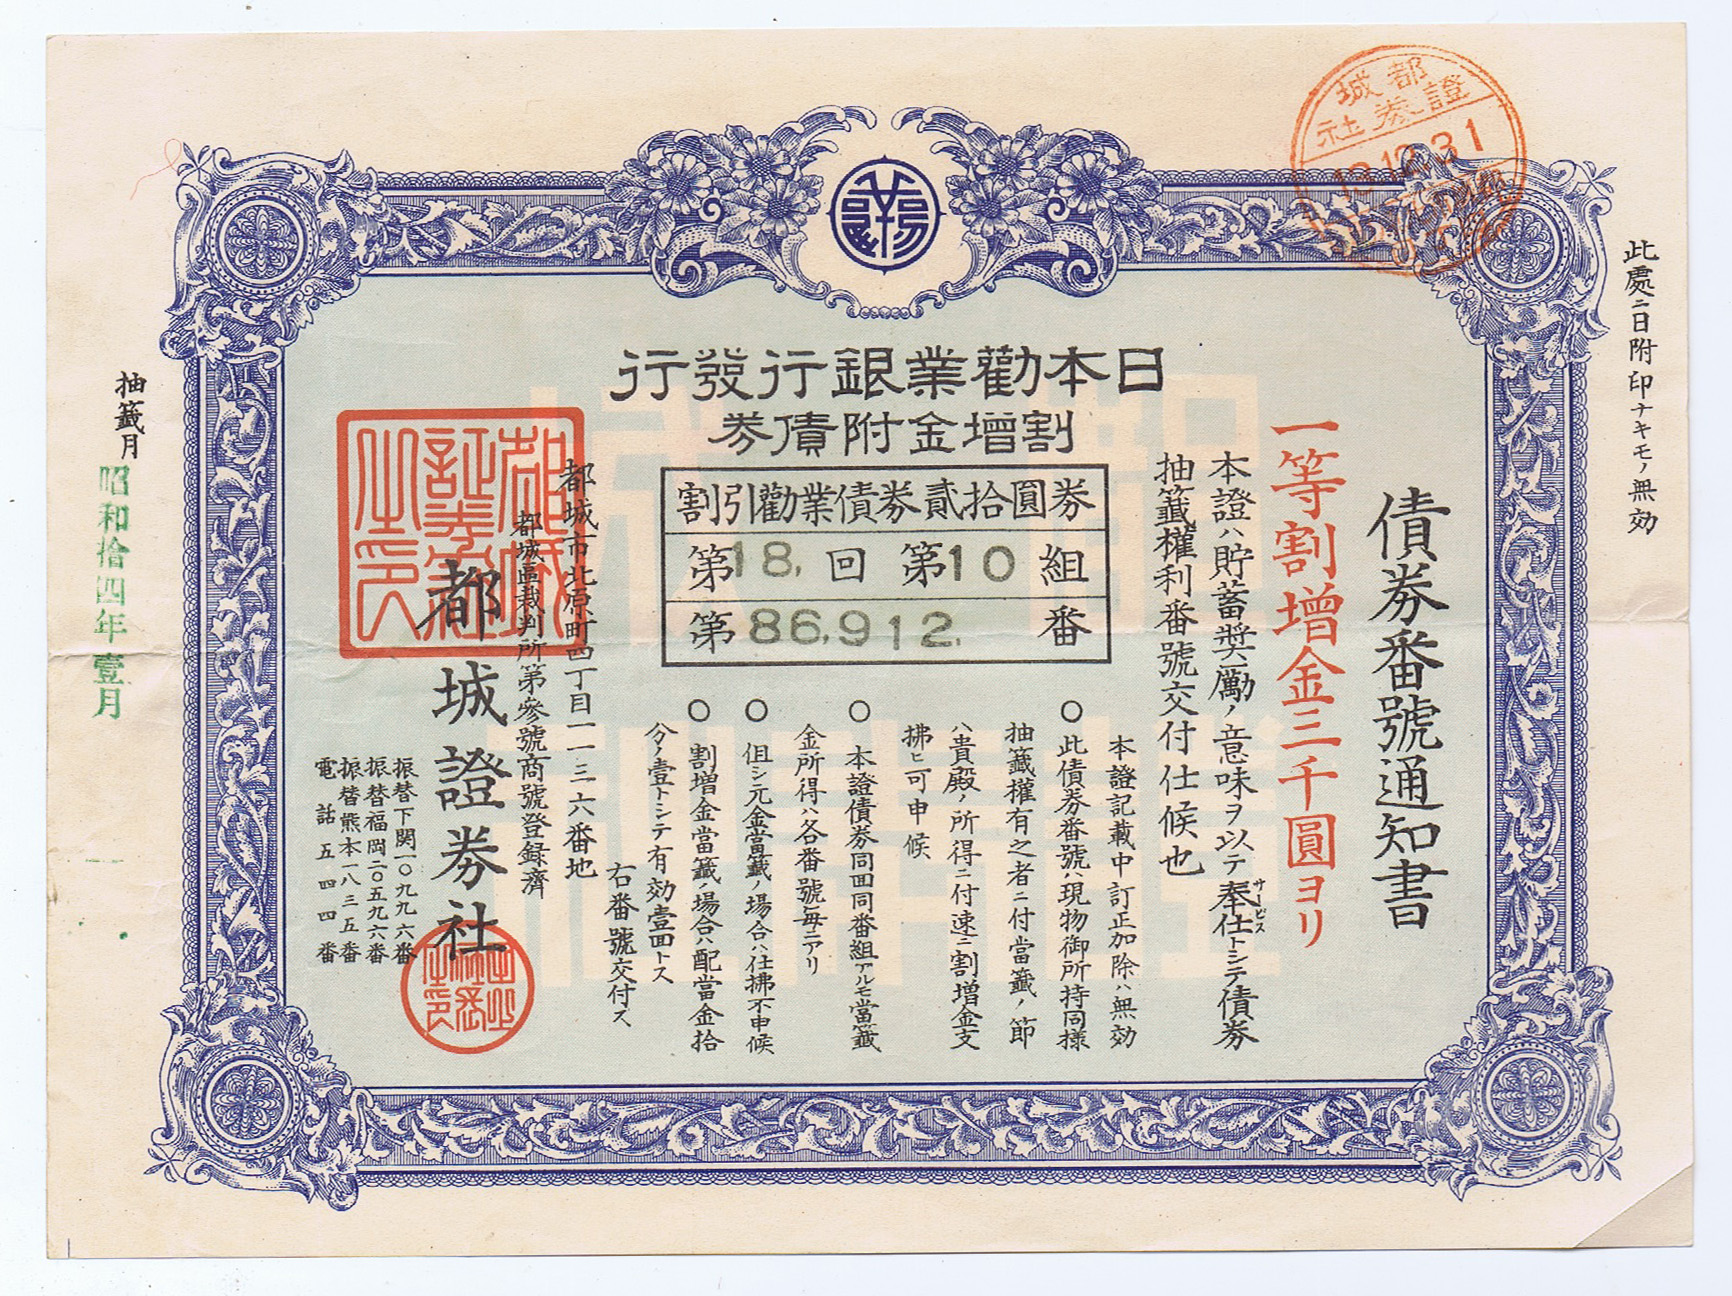 此處ニ日附印ナキモノ無効
都城
證券社
13.12.31
債券番號通知書
一等割増金三千圓ヨリ
本證ハ貯蓄奬勵ノ意味ヲ以テ奉仕トシテ債券
サービス
抽籤權利番號交付仕候也
日本勸業銀行發行
割増金附債券
割引勸業債券貳拾圓券
第18.回第10組
第86,912.番
本證記載中訂正加除ハ無効
○此債券番號ハ現物御所持同様
抽籤權有之者ニ付當籤ノ節
ハ貴殿ノ所得ニ付速ニ割増金支
拂ヒ可申候
○本證債券同回同番組アルモ當籤
金所得ハ各番號毎ニアリ
○但シ元金當籤ノ場合ハ仕拂不申候
○割増金當籤ノ場合ハ配當金拾
分ノ壹トシテ有効壹回トス
右番號交付ス
都城市北原町四丁目一一三六番地
都城區裁判所第參號商號登録濟
都城證券社
都城証券社之印
振替下関一〇九九六番
振替福岡二〇五九六番
振替熊本一八三五番
電話五四四番
抽籤月
昭和拾四年壹月